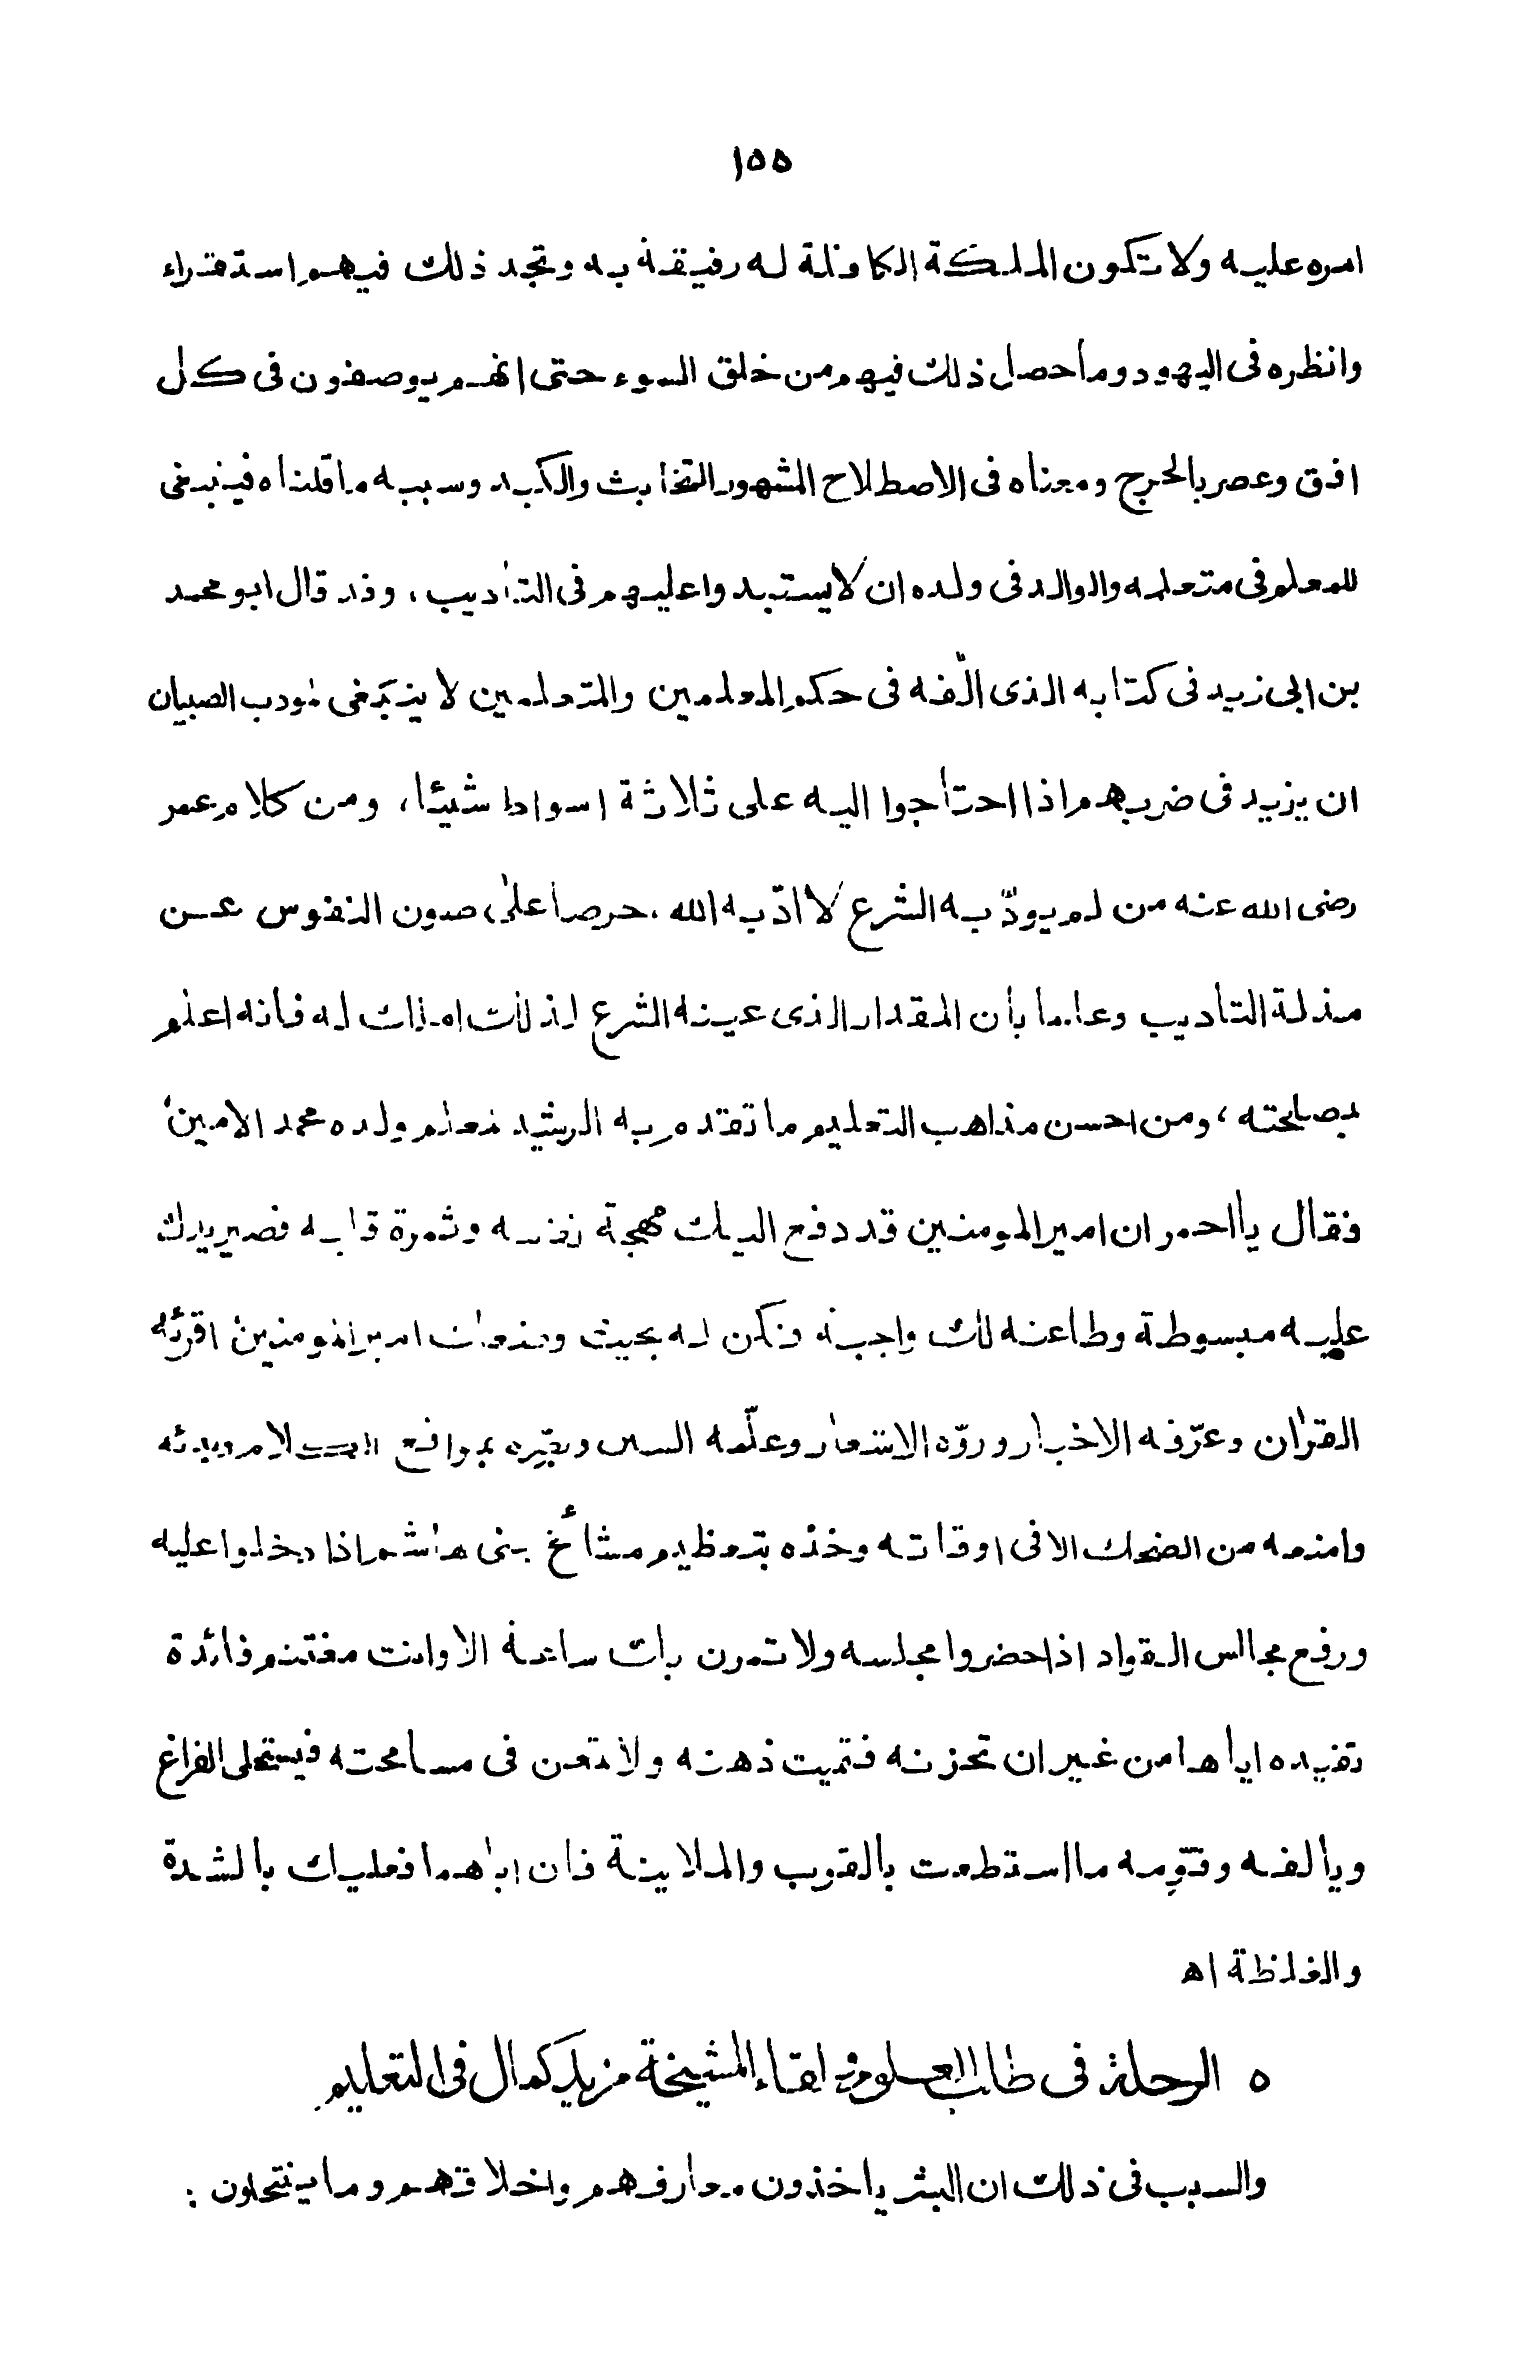 ١٥٥
امره عليه ولا تكون الملكة الكافلة له رفيقة به وتجد ذلك فيهم استقراء
وانظره فى اليهود وما حصل ذلك فيهم من خلق السوء حتى انهم يوصفون فى كل
افق وعصر بالحرج ومعناه فى الاصطلاح المشهور التخابث والكيد وسببه ما قلناه فينبغى
للمعلم فى متعلمه والوالد فى ولده ان لا يستبدوا عليهم فى التأديب، وقد قال ابو محمد
بن ابى زيد فى كتابه الذى الّفه فى حكم المعلمين والمتعلمين لا ينبغى لمودب الصبيان
ان يزيد فى ضربهم اذا احتاجوا اليه على ثلاثة اسواط شيئا، ومن كلام عمر
رضى الله عنه من لم يودّبه الشرع لا ادّبه الله، حرصا على صون النفوس عن
مذلة التأديب وعلما بأن المقدار الذى عينه الشرع لذلك املك له فانه اعلم
بمصلحته، ومن احسن مذاهب التعليم ما تقدم به الرشيد لمعلم ولده محمد الامين
فقال يا احمر ان امير المومنين قد دفع اليك مهجة نفسه وثمرة قلبه فصير يدك
عليه مبسوطة وطاعته لك واجبة فكن له بحيث وضعك امير المومنين اقرئه
القرٰان وعرّفه الاخبار وروّه الاشعار وعلّمه السنن وبصّره بمواقع الكلام وبدئه
وامنعه من الضحك الا فى اوقاته وخذه بتعظيم مشائخ بنى هاشم اذا دخلوا عليه
ورفع مجالس القواد اذا حضروا مجلسه ولا تمرن بك ساعة الا وانت مغتنم فائدة
تفيده اياها من غير ان تحزنه فتميت ذهنه ولا تمعن فى مسامحته فيستحلى الفراغ
ويألفه وقوّمه ما استطعت بالقرب والملاينة فان اباهما فعليك بالشدة
والغلظة اه
٥ الرحلة فى طلب العلوم و لقاء المشيخة مزيد كمال فى التعليم
والسبب فى ذلك ان البشر ياخذون معارفهم واخلاقهم وما ينتحلون :